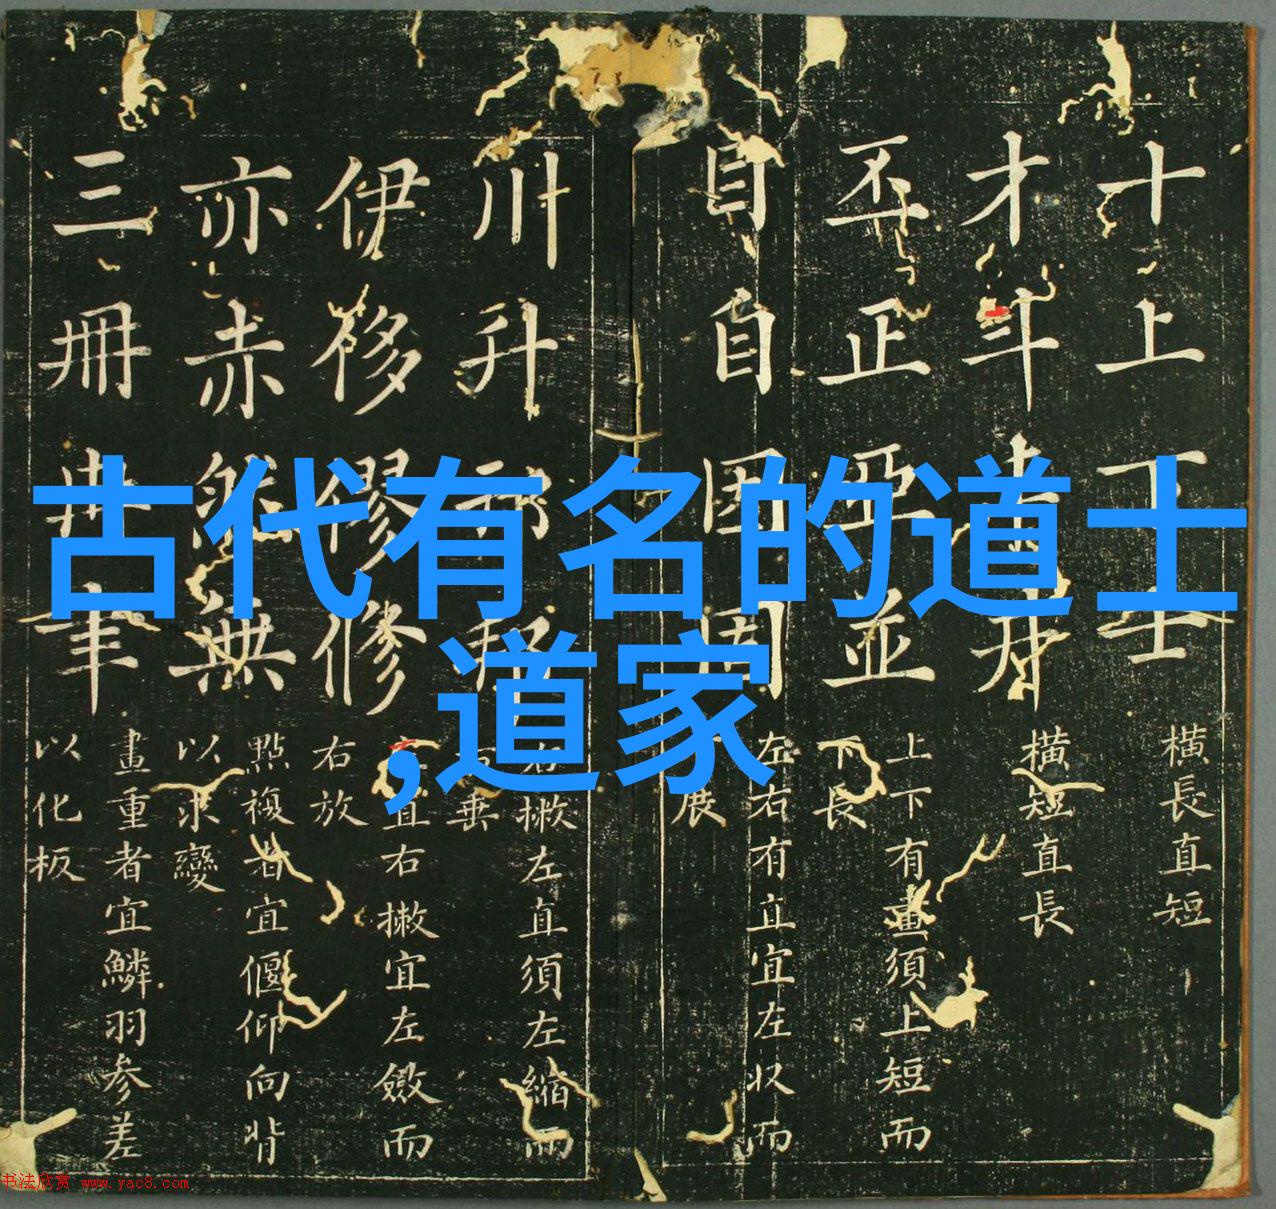 古代有名的道士
,道家
十上士
橫長直短
才斗
橫短直長
丕正亞並
上下有畫須上短而
下長
目自因固
左右有直宜左收而
展
川升
右撇左直須左縮而
垂
伊侈修
直右撇宜左斂而
右放
亦赤然無
點複者宜偃仰向背
以求變
三冊聿
畫重者宜鱗羽參差
以化板
书法欣赏 www.yac8.com